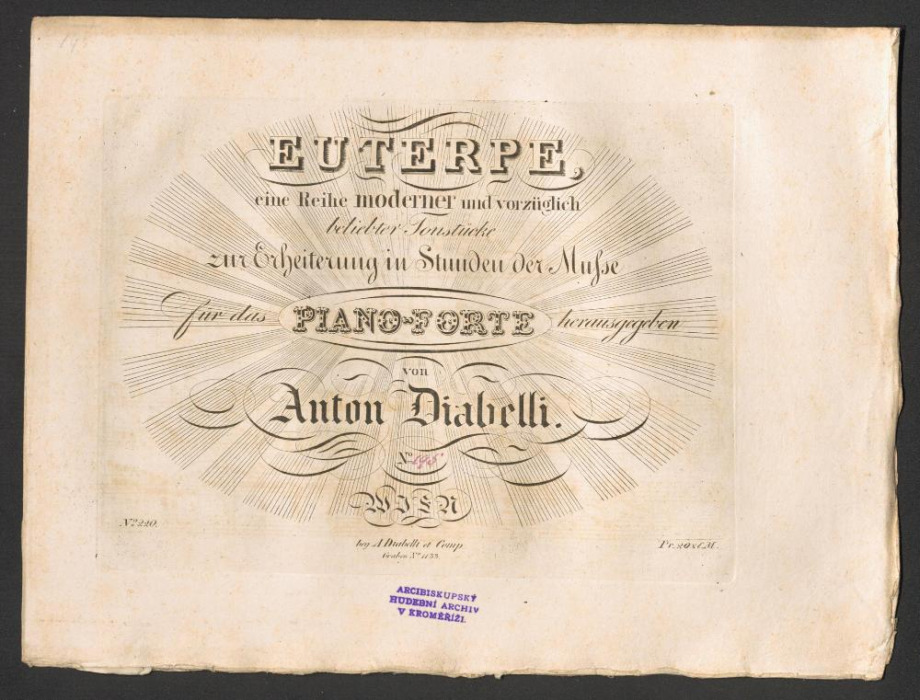 EUTERPE,
eine Reihe moderner und vorzüglich
beliebter Tonstücke
zur Erheiterung in Stunden der Muſse
für das PIANO-FORTE herausgegeben
von
Anton Diabelli.
No. 198.
WIEN
No. 220.
bey A. Diabelli et Comp.
Graben No. 1133.
ARCIBISKUPSKÝ
HUDEBNÍ ARCHIV
V KROMĚŘÍŽI.